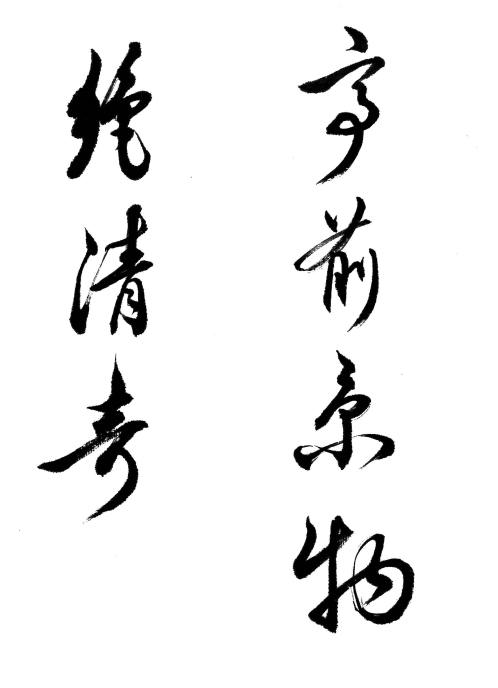 亭前景物
絶清奇